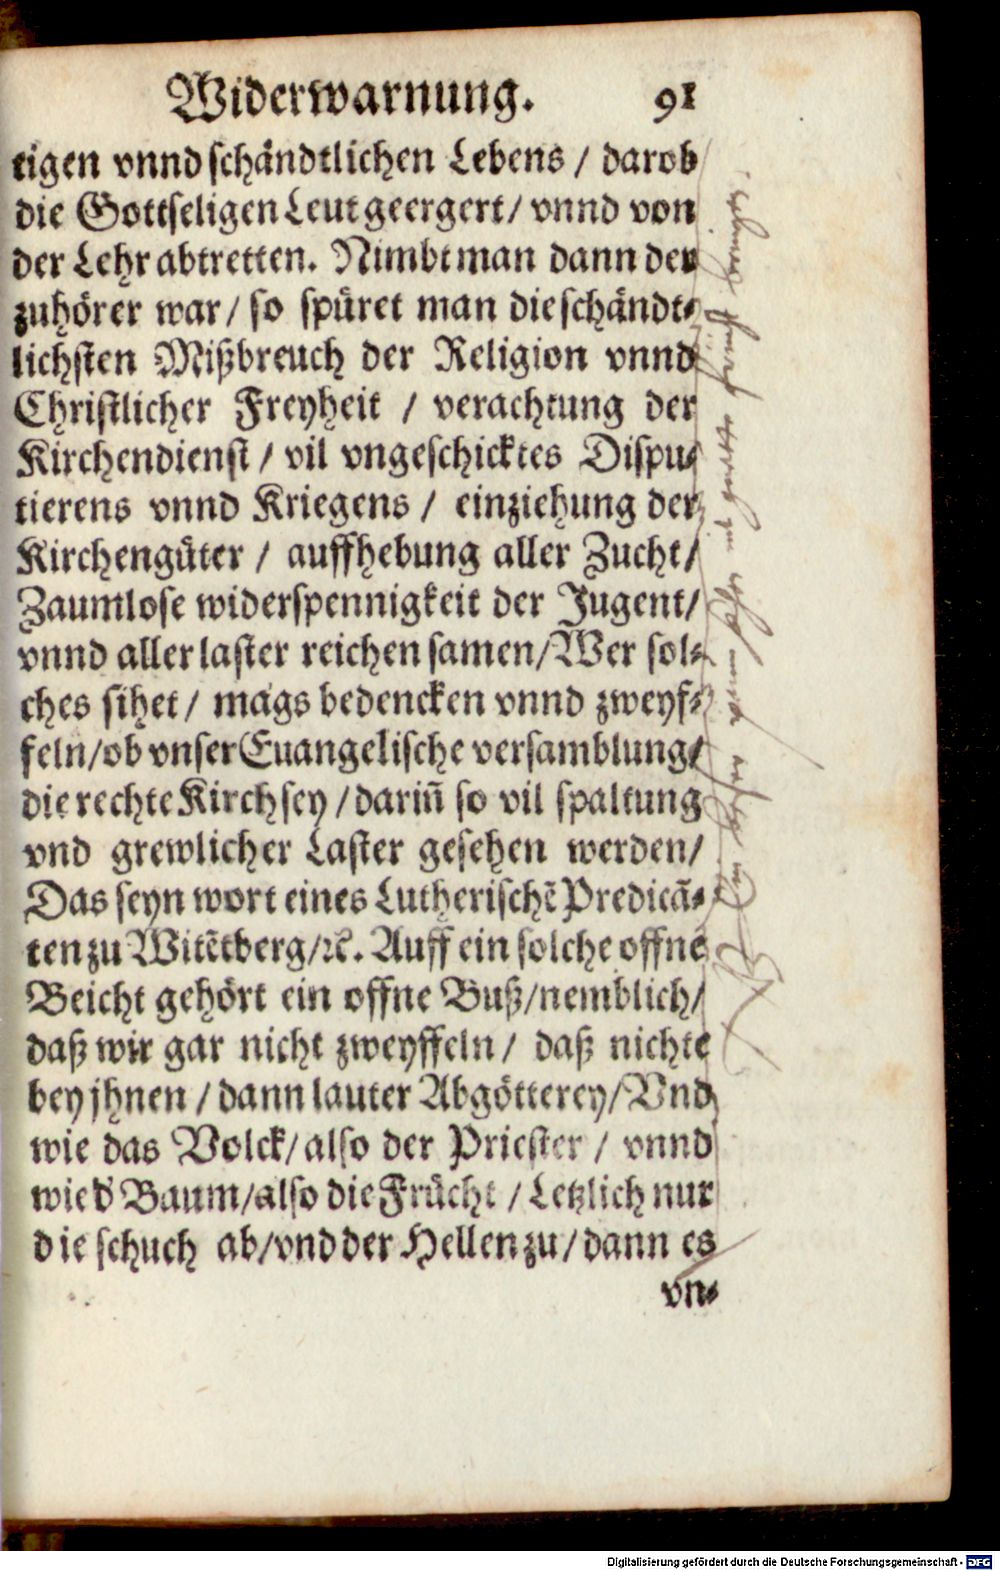 Widerwarnung. 91
tigen vnnd schändtlichen Lebens / darob
die Gottseligen Leut geergert / vnnd von
der Lehr abtretten. Nimbt man dann der
zuhörer war / so spüret man die schändt⸗
lichsten Mißbreuch der Religion vnnd
Christlicher Freyheit / verachtung der
Kirchendienst / vil vngeschicktes Dispu⸗
tierens vnnd Kriegens / einziehung der
Kirchengüter / auffhebung aller Zucht /
Zaumlose widerspennigkeit der Jugent /
vnnd aller laster reichen samen / Wer sol⸗
ches sihet / mags bedencken vnnd zweyf⸗
feln / ob vnser Euangelische versamblung /
die rechte Kirch sey / dariñ so vil spaltung
vnd grewlicher Laster gesehen werden /
Das seyn wort eines Lutherischẽ Predicã⸗
ten zu Witẽtberg / ꝛc. Auff ein solche offne
Beicht gehört ein offne Buß / nemblich /
daß wir gar nicht zweyffeln / daß nichts
bey jhnen / dann lauter Abgötterey / Vnd
wie das Volck / also der Priester / vnnd
wie d' Baum / also die Frücht / Letzlich nur
die schuch ab / vnd der Hellen zu / dann es
vn⸗
Digitalisierung gefördert durch die Deutsche Forschungsgemeinschaft - DFG